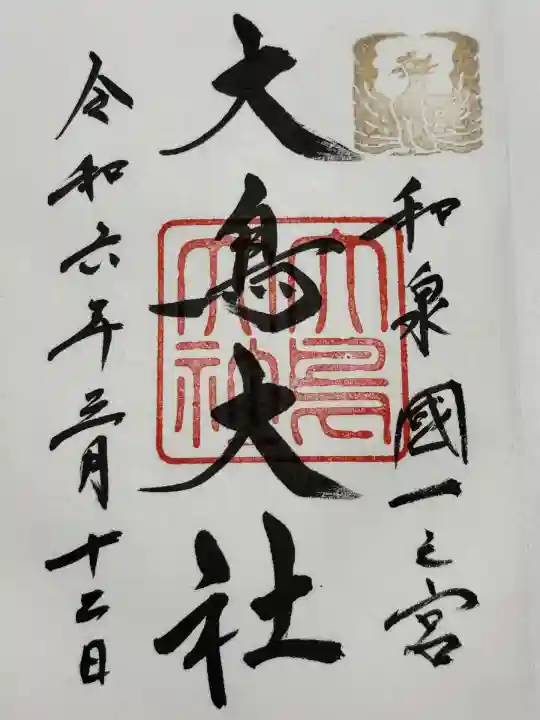 和泉國一之宮
大鳥大社
大鳥大神
令和六年三月十二日